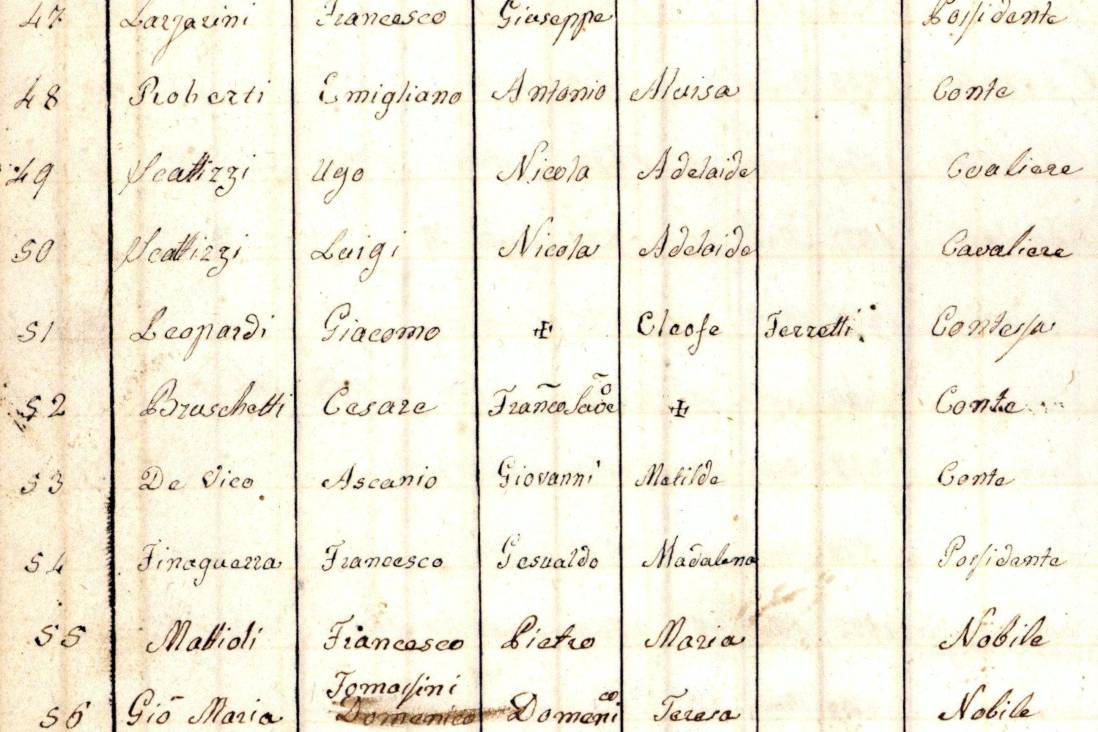 47 Lazzarini Francesco Giuseppe Possidente
48 Roberti Emigliano Antonio Aluisa Conte
49 Scattizzi Ugo Nicola Adelaide Cvaliere
50 Scattizzi Luigi Nicola Adelaide Cavaliere
51 Leopardi Giacomo ✠ Cleofe Ferretti Contessa
52 Bruschetti Cesare Franc̃o Savẽo ✠ Conte
53 De Vico Ascanio Giovanni Matilde Conte
54 Finaguerra Francesco Gesualdo Madalena Possidente
55 Mattioli Francesco Pietro Maria Nobile
Tomassini
56 Giõ Maria Domenico Domenico Teresa Nobile